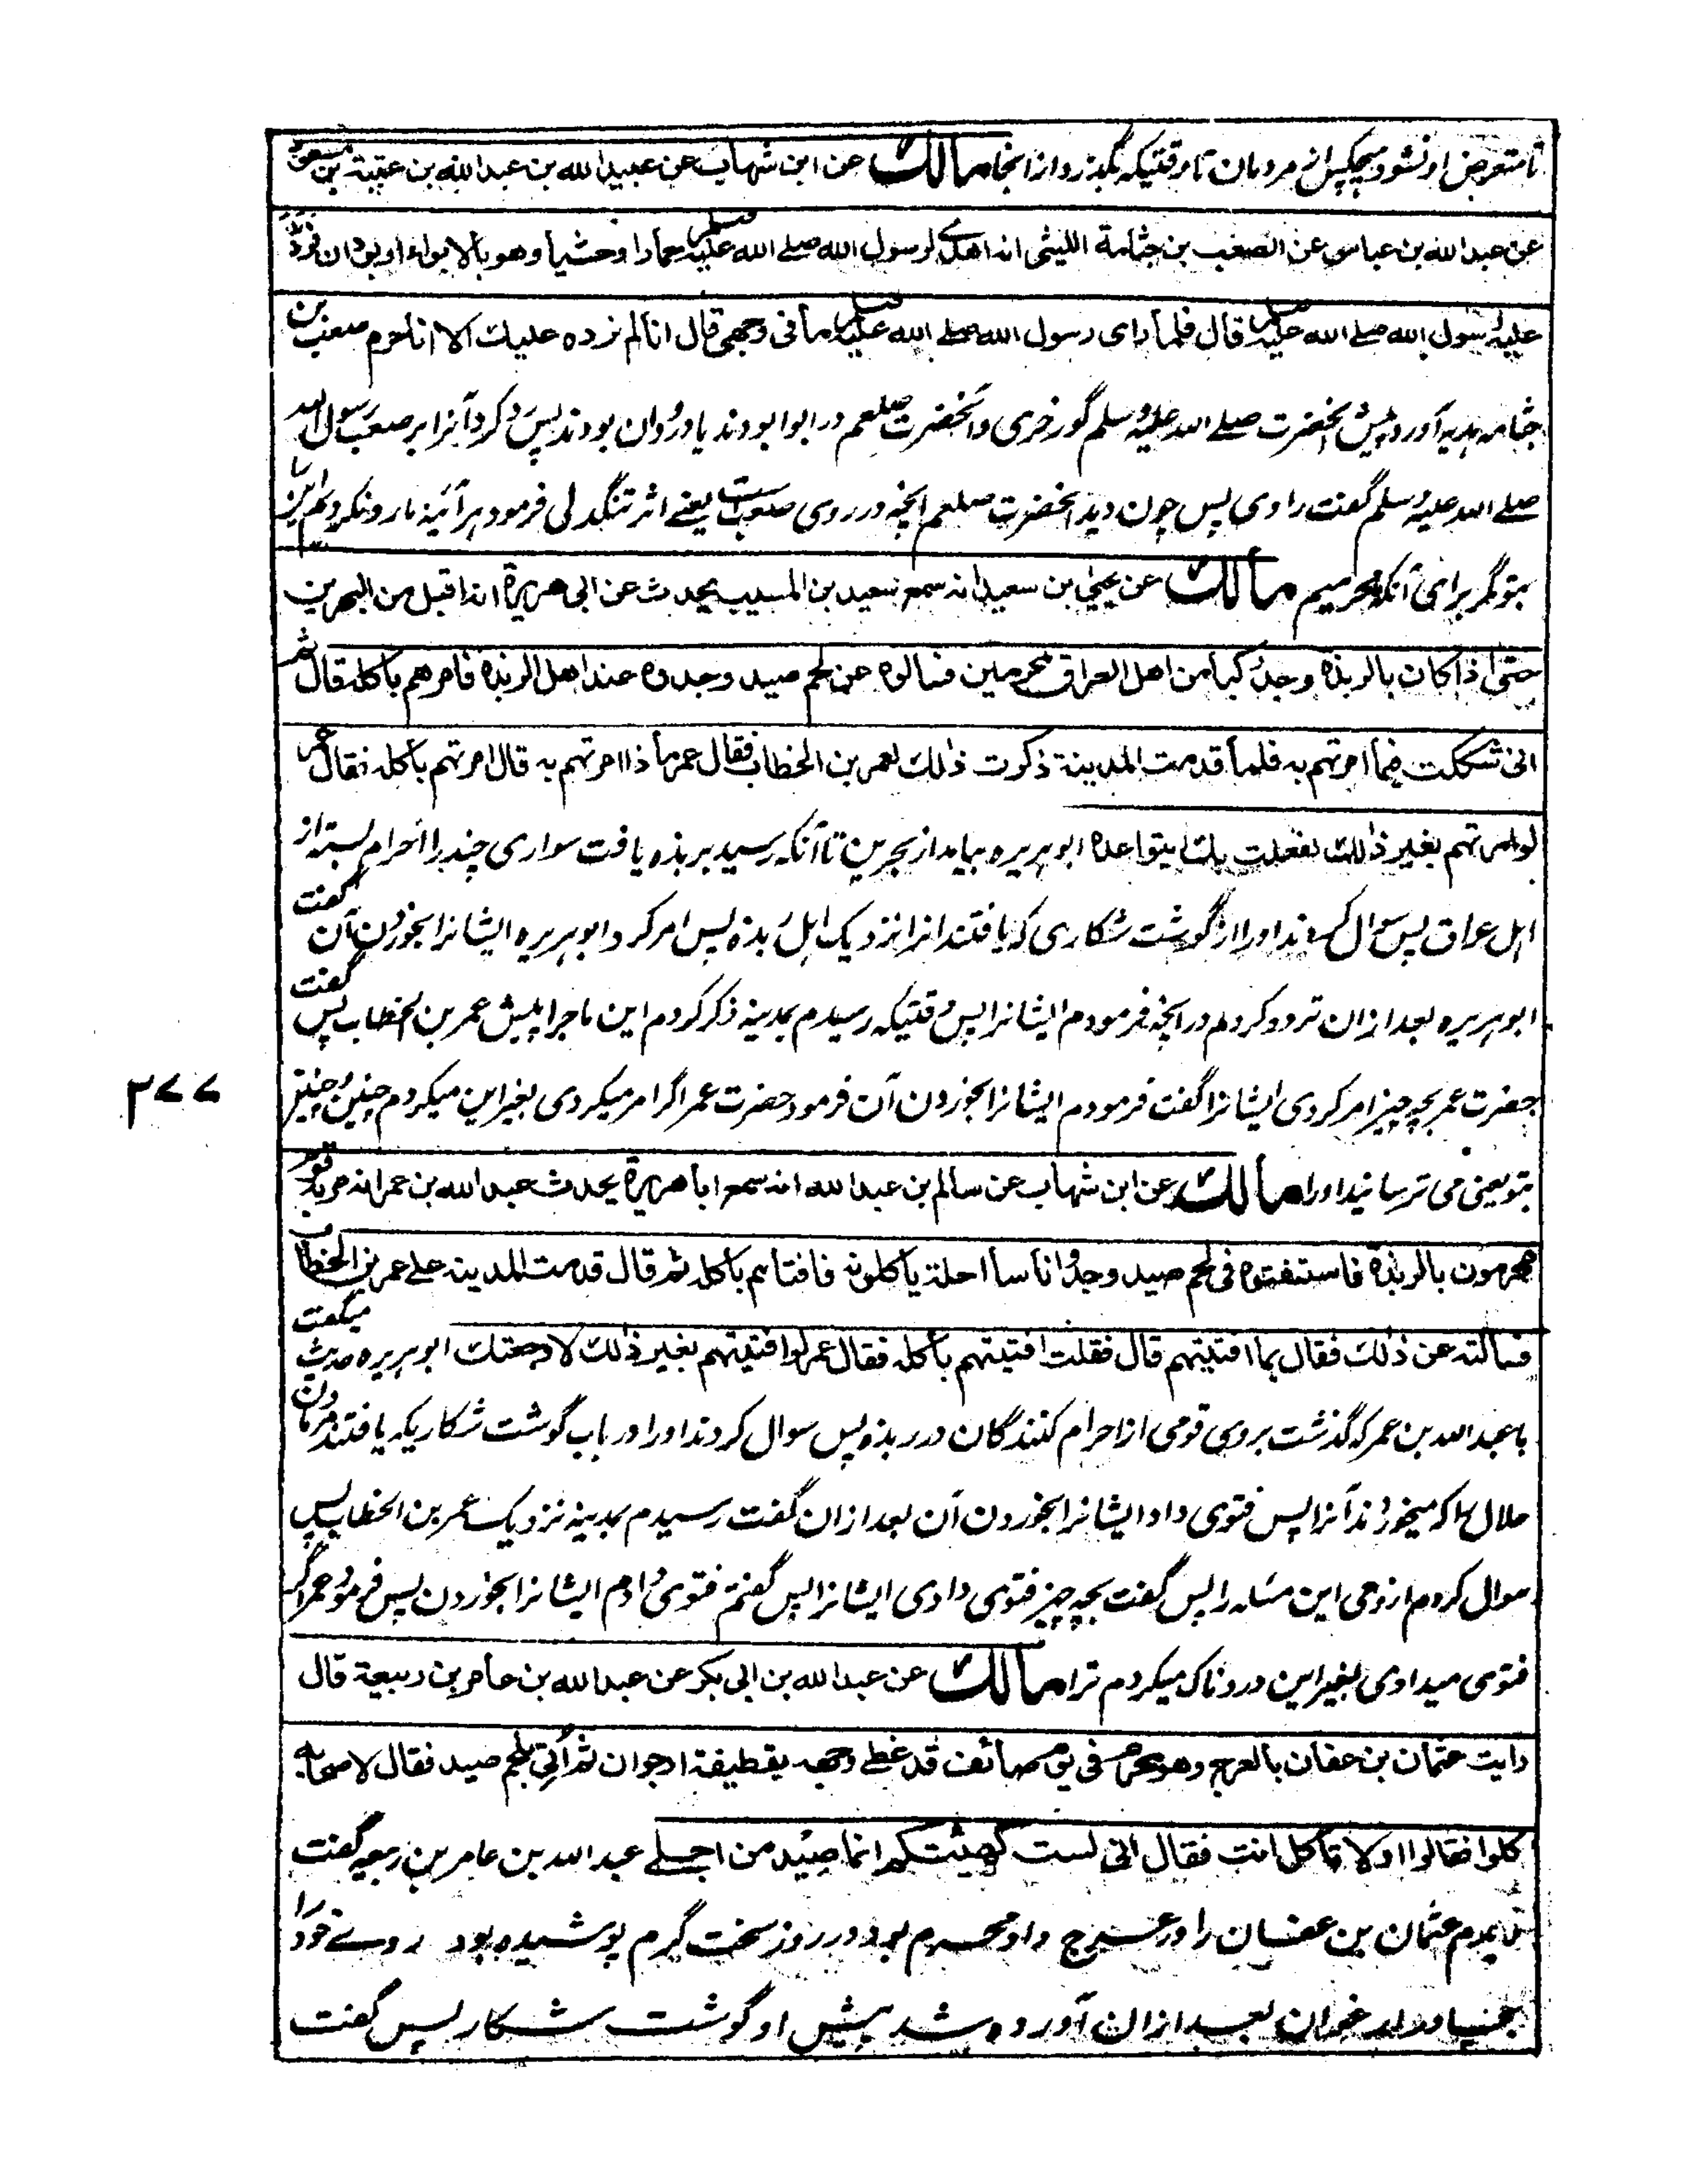 تا متعرض او نشود هیچکس از مردمان تا وقتیکه بگذرد از انجا مالك عن ابن شهاب عن عبيد الله بن عبد الله بن عتبة بن مسعود
عن عبد الله بن عباس عن الصعب بن جثامة الليثى انه اهدى لرسول الله صلے الله عليه وسلم حمارا وحشيا وهو بالابواء او بودان فردّه
عليه رسول الله صلے الله عليه وسلم قال فلما راى رسول الله صلے الله عليه وسلم ما فى وجهى قال انا لم نرده عليك الا انا حرم صعب بن
جثامه هدیه آورد پیش آنحضرت صلے الله علیه وسلم گورخری و آنحضرت صلعم در ابوا بودند یا در ودان بودند پس رد کرد آنرا بر صعب رسول الله
صلے الله علیه وسلم گفت راوی پس چون دید آنحضرت صلعم آنچه در روی صعب است یعنے اثر تنگدلی فرمود هر آئینه ما رد نکردیم این را
بتو مگر برای آنکه محرمیم مالك عن يحيى بن سعيد انه سمع سعيد بن المسيب يحدث عن ابى هريرة انه اقبل من البحرين
حتى اذا كان بالربذة وجد ركبا من اهل العراق محرمين فسالوه عن لحم صيد وجدوه عند اهل الربذة فامرهم باكله قال ثم
انى شككت فيما امرتهم به فلما قدمت المدينة ذكرت ذلك لعمر بن الخطاب فقال عمر ما ذا امرتهم به قال امرتهم باكله فقال عمر
لو امرتهم بغير ذلك لفعلت بك يتواعده ابو هریره بیامد از بحرین تا آنکه رسید بربذه یافت سواری چند را احرام بسته از
اهل عراق پس سوال کردند او را از گوشت شکاری که یافتند آنرا نزدیک اهل ربذه پس امر کرد ابو هریره ایشانرا بخوردن آن گفت
ابو هریره بعد از ان تردد کردم در آنچه فرمودم ایشانرا پس وقتیکه رسیدم بمدینه ذکر کردم این ماجرا پیش عمر بن الخطاب پس گفت
حضرت عمر بچه چیز امر کردی ایشانرا گفت فرمودم ایشانرا بخوردن آن فرمود حضرت عمر اگر امر میکردی بغیر این میکردم چنین و چنین
بتو یعنی می ترسانید او را مالك عن ابن شهاب عن سالم بن عبد الله انه سمع ابا هريرة يحدث عبد الله بن عمر انه مر به قوم
محرمون بالربذة فاستفتوه فى لحم صيد وجدوا ناسا احلة ياكلونه فافتاهم باكله ثم قال قدمت المدينه على عمر بن الخطاب
فسالته عن ذلك فقال بما افتيتهم قال فقلت افتيتهم باكله فقال عمر لو افتيتهم بغير ذلك لاوجعتك ابو هریره حدیث میگفت
با عبد الله بن عمر که گذشت بروی قومی از احرام کنندگان در ربذه پس سوال کردند او را در باب گوشت شکاریکه یافتند مردمان
حلال را که میخوردند آنرا پس فتوی داد ایشانرا بخوردن آن بعد از ان گفت رسیدم بمدینه نزدیک عمر بن الخطاب پس
سوال کردم از وی این مسئله را پس گفت بچه چیز فتوی دادی ایشانرا پس گفتم فتوی دادم ایشانرا بخوردن پس فرمود عمر اگر
فتوی میدادی بغیر این دردناک میکردم ترا مالك عن عبد الله بن ابى بكر عن عبد الله بن عامر بن ربيعة قال
رايت عثمان بن عفان بالعرج وهو محرم فى يوم صائف قد غطى وجهه بقطيفة ارجوان ثم اتى بلحم صيد فقال لاصحابه
كلوا فقالوا اولا تاكل انت فقال انى لست كهيئتكم انما صيد من اجلے عبد الله بن عامر بن ربیعه گفت
دیدم عثمان بن عفان را در عرج و او محرم بود در روز سخت گرم پوشیده بود روے خود را
بعد از ان آورده شد پیش او گوشت شکار پس گفت
۳۷۷